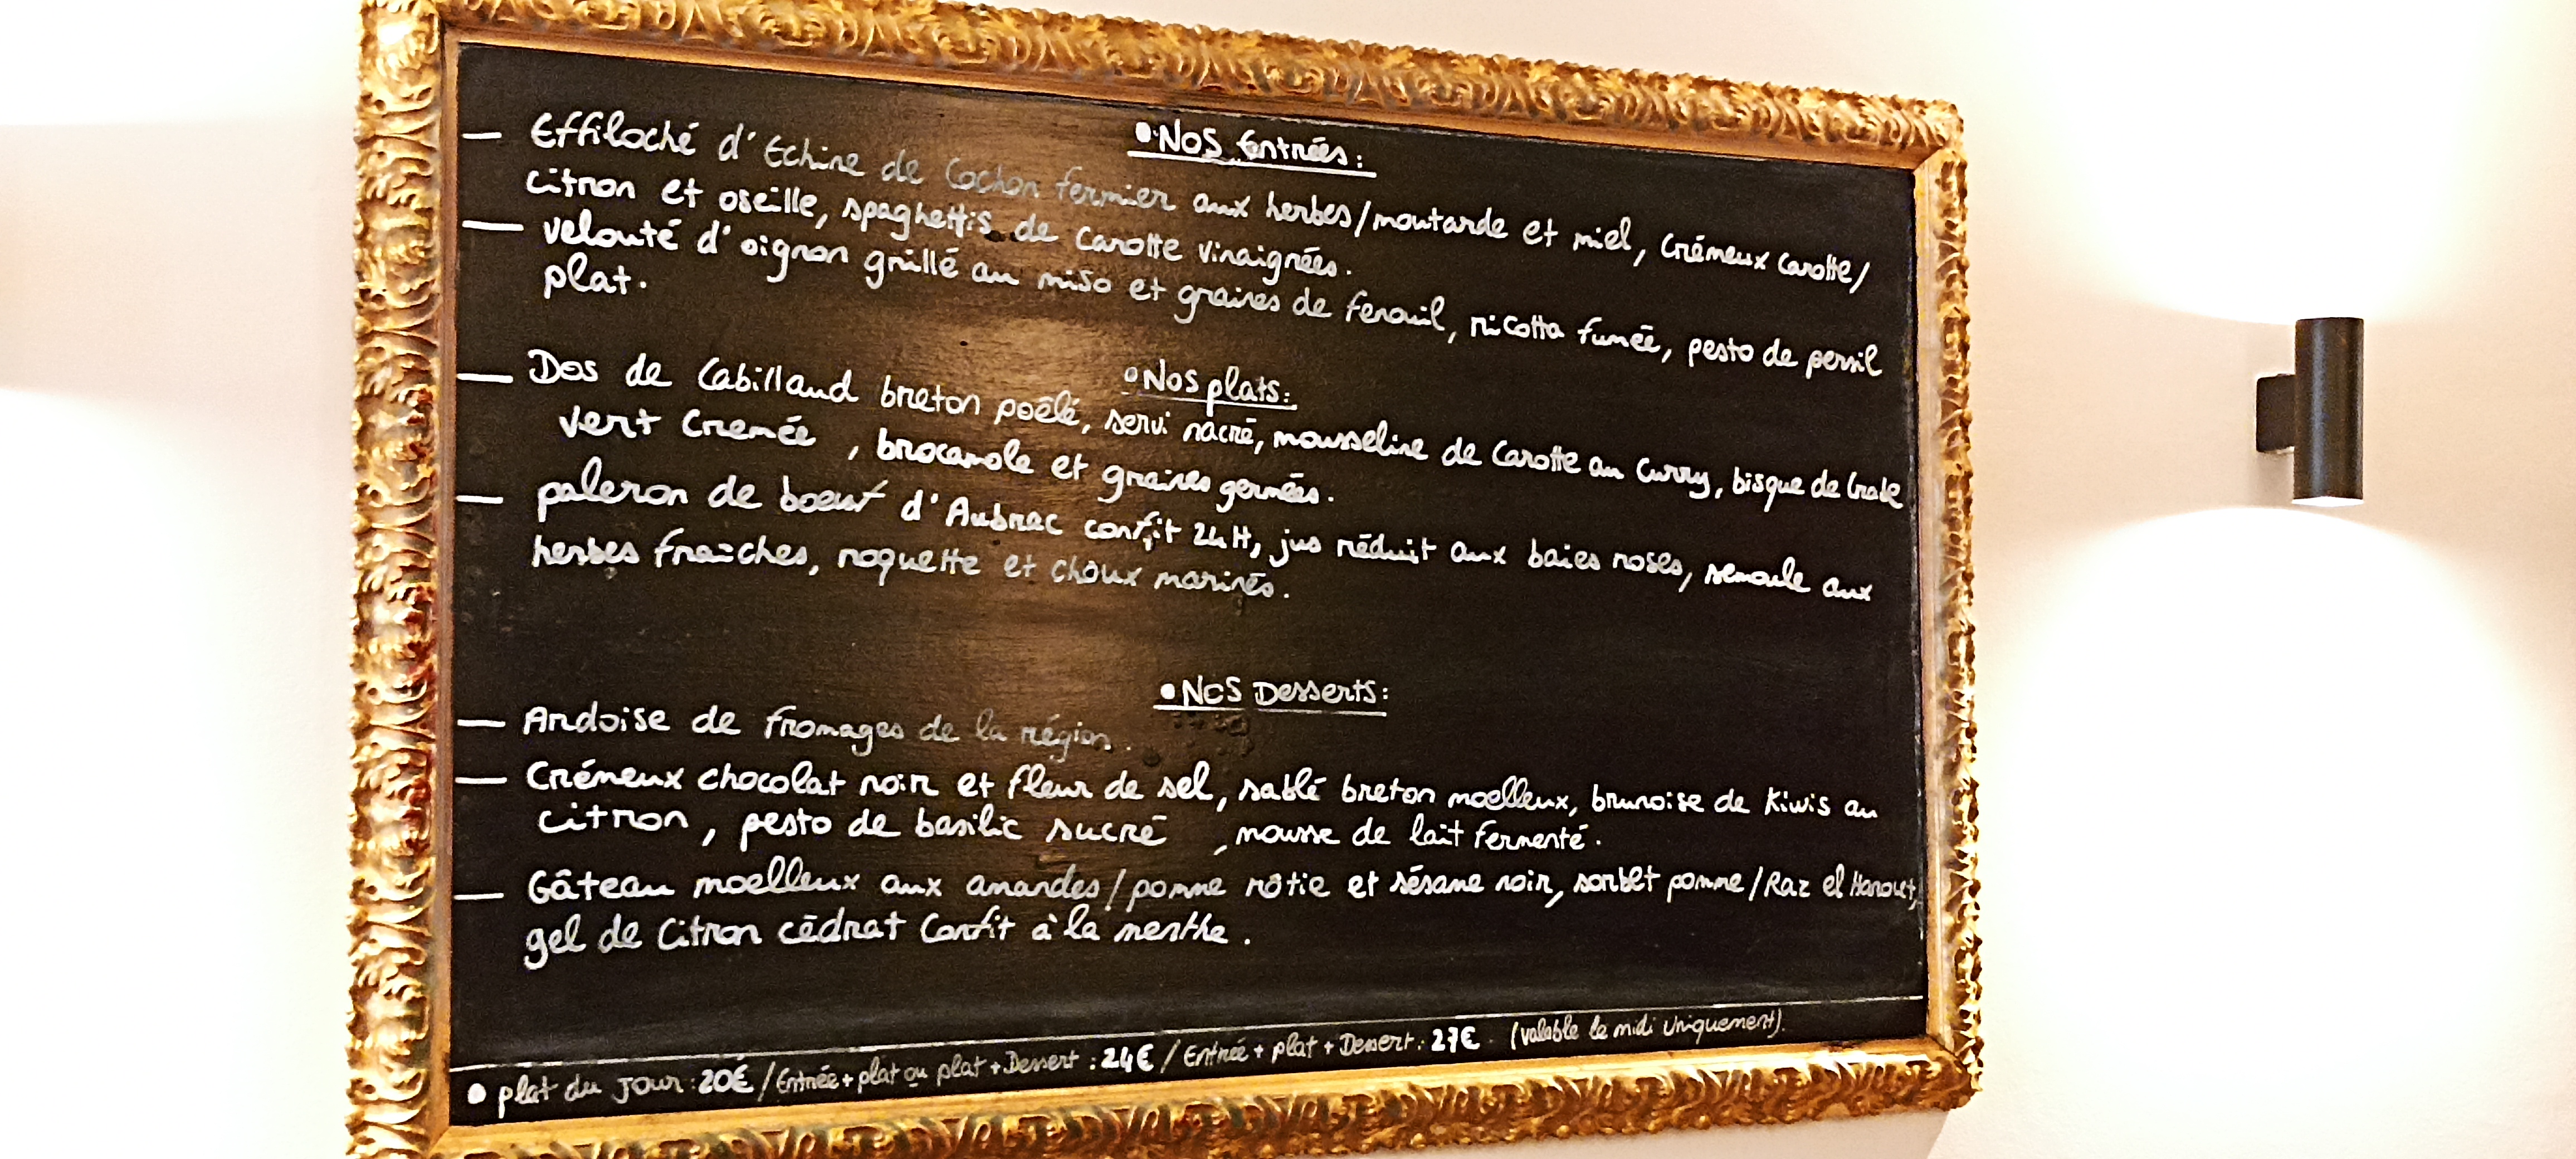 • Nos Entrées:
— Effiloché d'Echine de Cochon fermier aux herbes/moutarde et miel, Crémeux Carotte/
citron et oseille, spaghettis de Carotte vinaigrées.
— velouté d'oignon grillé au miso et graines de fenouil, ricotta fumée, pesto de persil
plat.
• Nos plats:
— Dos de Cabillaud breton poêlé, servi nacré, mousseline de Carotte au Curry, bisque de Crabe
vert Cremée, brocamole et graines germées.
— paleron de boeuf d'Aubrac confit 24H, jus réduit aux baies roses, semoule aux
herbes fraîches, roquette et choux marinés.
• Nos Desserts:
— Ardoise de fromages de la région.
— Crémeux chocolat noir et fleur de sel, sablé breton moelleux, brunoise de Kiwis au
citron, pesto de basilic sucré, mousse de lait fermenté.
— Gâteau moelleux aux amandes/pomme rôtie et sésame noir, sorbet pomme/Raz el Hanout,
gel de Citron cédrat Confit à la menthe.
• plat du jour: 20€ / Entrée + plat ou plat + Dessert: 24€ / Entrée + plat + Dessert: 27€. (valable le midi Uniquement).